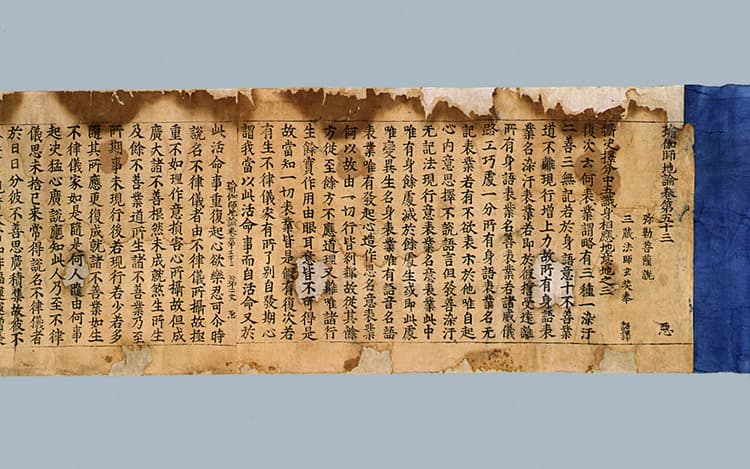 瑜伽師地論卷第五十三
弥勒菩薩說
三藏法師玄奘奉 詔譯 惡
攝決擇分中五識身相應地意地之三
復次云何表業謂略有三種一染汙
二善三無記若於身語意十不善業
道不離現行增上力故所有身語表
業名染汙表業若即於彼誓受遠離
所有身語表業名善表業若諸威儀
路工巧處一分所有身語表業名無
記表業若有不欲表示於他唯自起
心內意思擇不說語言但發善染汙
無記法現行意表業名意表業此中
唯有身餘處滅於餘處生或即此處
唯變異生名身表業唯有語音名語
表業唯有發起心造作思名意表業
何以故由一切行皆剎那故從其餘
方徙至餘方不應道理又離唯諸行
生餘實作用由眼耳意皆不可得是
故當知一切表業皆是假有復次若
有生不律儀家有所了別自發期心
謂我當以此活命事而自活命又於
瑜伽師地論卷第五十三 第二丈 惡
此活命事重復起心欲樂忍可介時
說名不律儀者由不律儀所攝故極
重不如理作意損害心所攝故但成
廣大諸不善根然未成就煞生所生
及餘不善業道所生諸不善業乃至
所期事未現行後若現行若少若多
隨其所應更復成就諸不善業如生
不律儀家如是隨是何人隨由何事
起決猛心廣說應知此人乃至不律
儀思未捨已來常得說名不律儀者
於日日分彼不善思廣積集故彼不